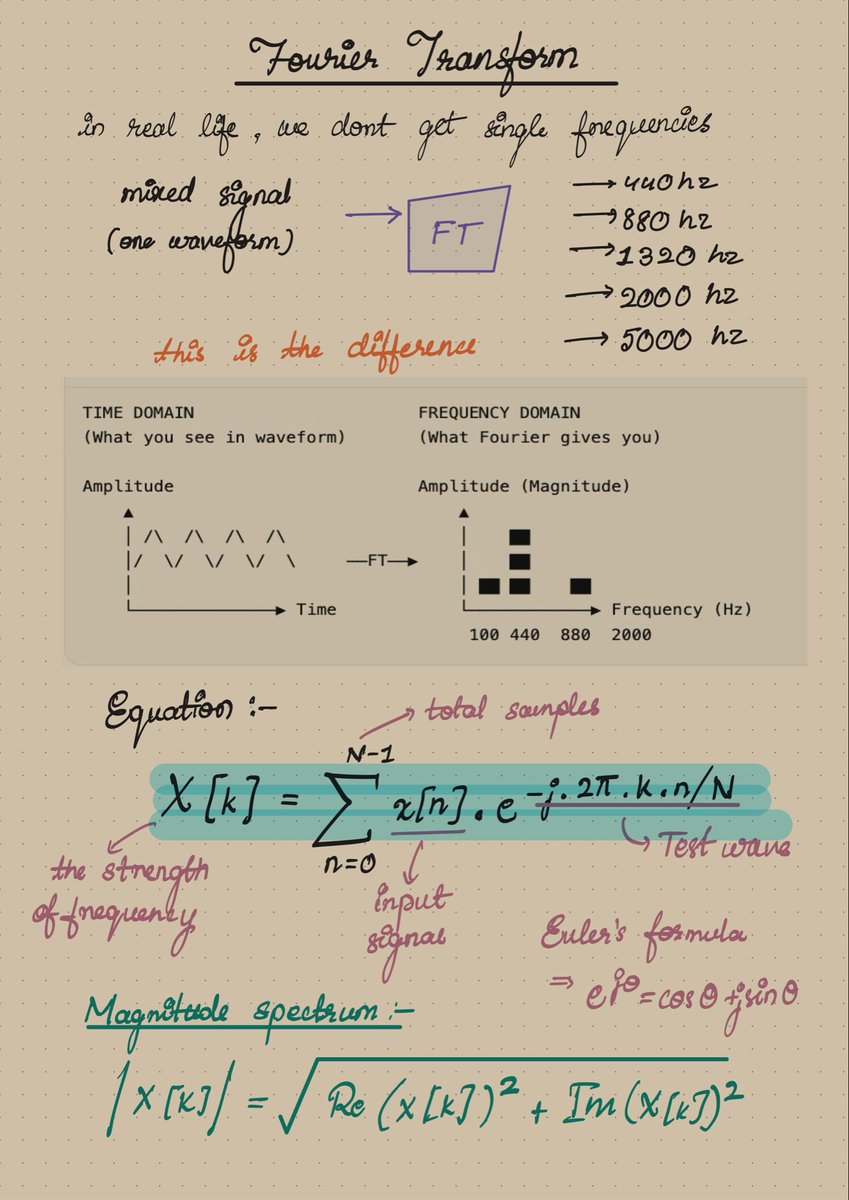 Fourier Transform
in real life, we dont get single frequencies
mixed signal
(one waveform)
FT
→ 440 hz
→ 880 hz
→ 1320 hz
→ 2000 hz
→ 5000 hz
this is the difference
TIME DOMAIN
(What you see in waveform)
Amplitude
Time
—FT→
FREQUENCY DOMAIN
(What Fourier gives you)
Amplitude (Magnitude)
Frequency (Hz)
100 440 880 2000
Equation :-
total samples
X[k] = ∑ x[n] . e^-j.2π.k.n/N
N-1
n=0
the strength
of frequency
input
signal
Test wave
Euler's formula
⇒ e^jθ = cosθ + jsinθ
Magnitude spectrum :-
|X[k]| = √Re(X[k])² + Im(X[k])²